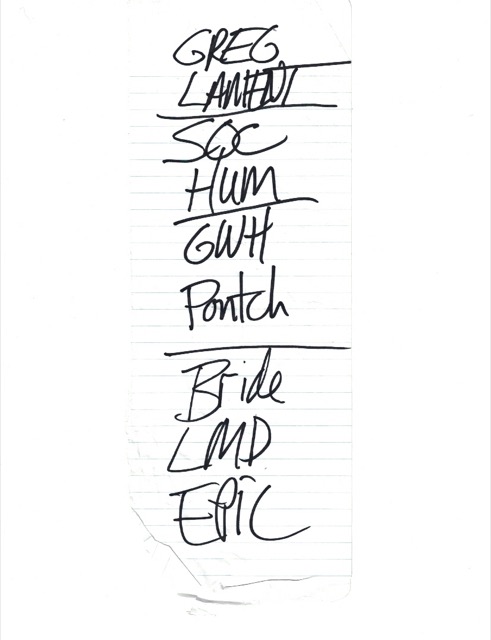 GREG
LAMENT
SOC
HUM
GWH
Pontch
Bride
LMD
EPIC